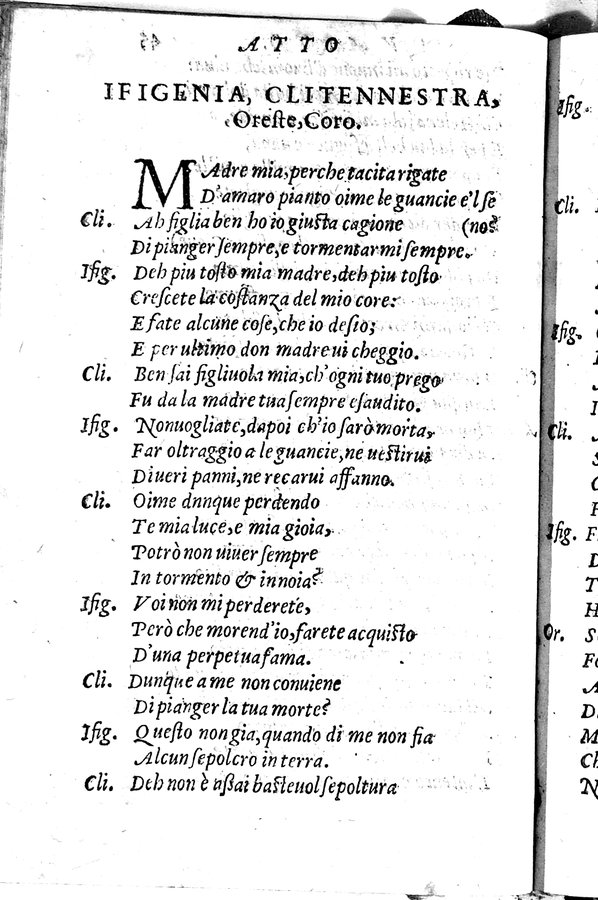 ATTO
IFIGENIA, CLITENNESTRA,
Oreste, Coro.
MAdre mia, perche tacita rigate
D'amaro pianto oime le guancie e'l se
Cli. Ah figlia ben ho io giusta cagione (no?
Di pianger sempre, e tormentarmi sempre.
Ifig. Deh piu tosto mia madre, deh piu tosto
Crescete la costanza del mio core:
E fate alcune cose, che io desio;
E per ultimo don madre ui cheggio.
Cli. Ben sai figliuola mia, ch'ogni tuo prego
Fu da la madre tua sempre esaudito.
Ifig. Non uogliate, dapoi ch'io sarò morta,
Far oltraggio a le guancie, ne uestirui
Di ueri panni, ne recarui affanno.
Cli. Oime dnnque perdendo
Te mia luce, e mia gioia,
Potrò non uiuer sempre
In tormento & in noia?
Ifig. Voi non mi perderete,
Però che morend'io, farete acquisto
D'una perpetua fama.
Cli. Dunque a me non conuiene
Di pianger la tua morte?
Ifig. Questo non gia, quando di me non fia
Alcun sepolcro in terra.
Cli. Deh non è assai basteuol sepoltura
Ifig.
Cli.
Ifig.
Cli.
Ifig.
Or.